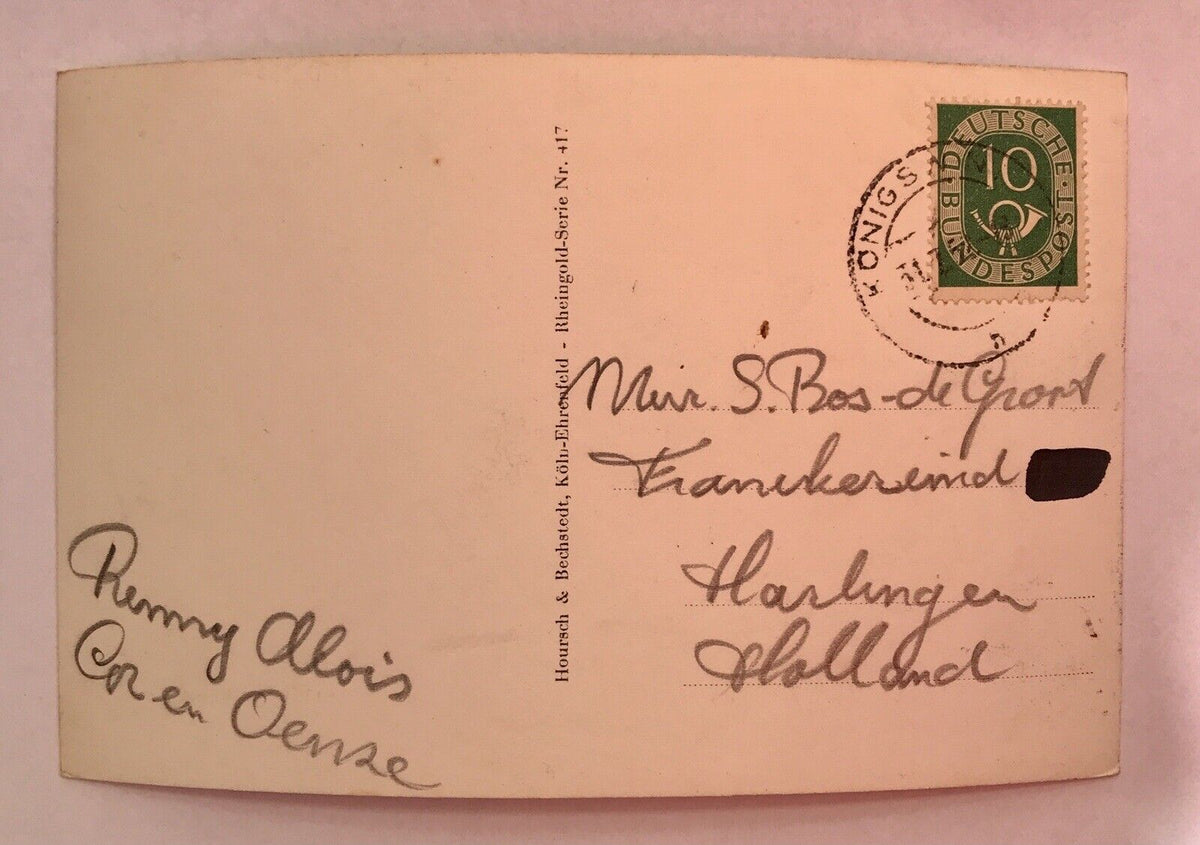 DEUTSCHE BUNDESPOST
10
KÖNIGS
Hoursch & Bechstedt, Köln-Ehrenfeld - Rheingold-Serie Nr. 417
Mevr. S. Bos-de Groot
Franekereind
Harlingen
Holland
Remmy Alois
Cor en Oenze